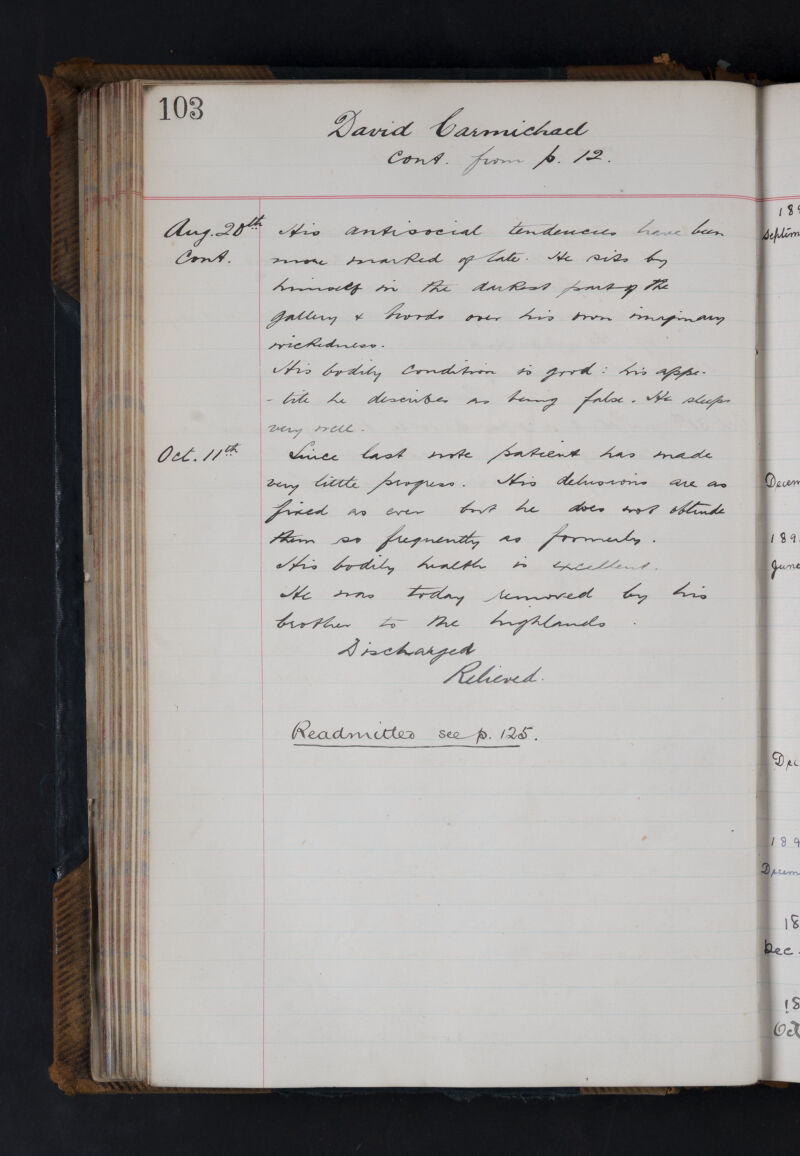 103
David Carmichael
Cont. from p. 12.
Aug. 20th His antisocial tendencies have been
Cont. more marked of late. He sits by
himself in the darkest part of the
gallery & broods over his own imaginary
wickedness.
His bodily condition is good: his appe-
-tite he describes as being false. He sleeps
very well.
Oct. 11th Since last note patient has made
very little progress. His delusions are as
fixed as ever but he does not obtrude
them so frequently as formerly.
His bodily health is excellent.
He was today removed by his
brother to the highlands.
Discharged
Relieved.
Readmitted see p. 125.
189
Septem
Decem
189
June
Dec
189
Decem
18
Dec.
18
Oct